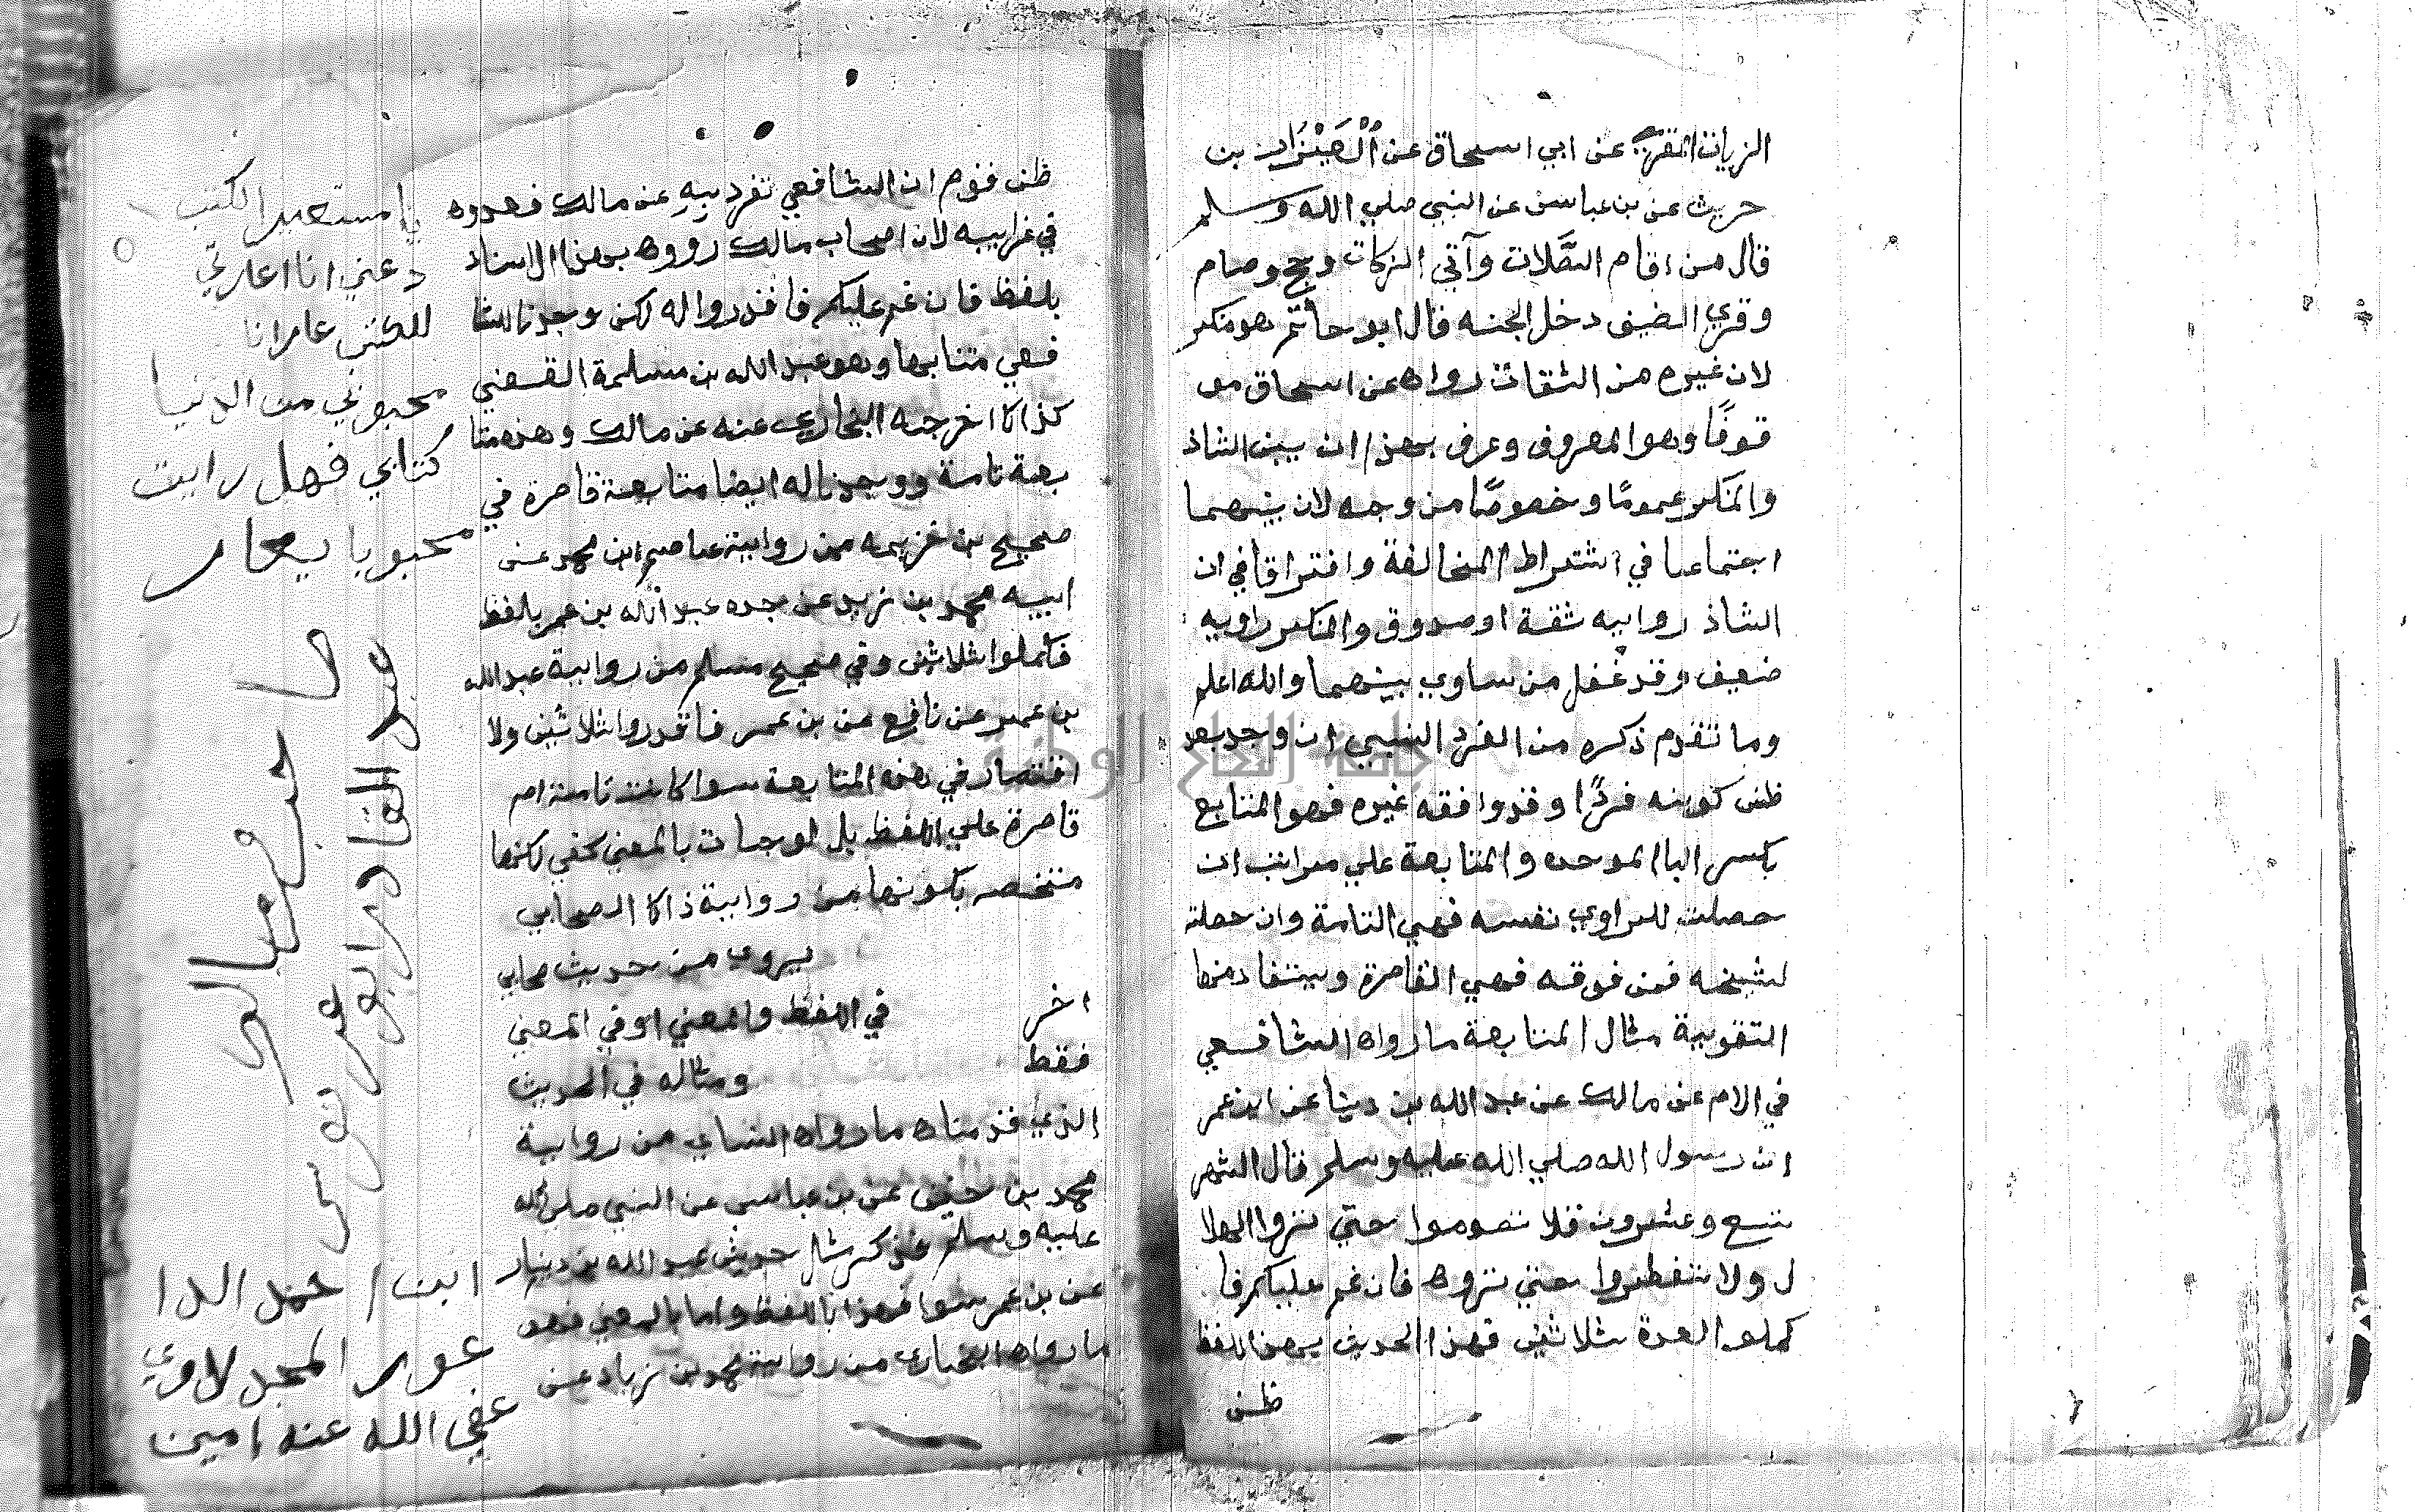 الزيات المقرئ عن ابي اسحاق عن العيزار بن
حريث عن بن عباس عن النبي صلي الله وسلم
قال من اقام الصلات وآتي الزكات وحج وصام
وقري الضيف دخل الجنه قال ابو حاتم هو منكر
لان غيره من الثقات رواه عن اسحاق مو
قوفًا وهو المعروف وعرف بهذا ان بين الشاذ
والمنكر عمومًا وخصوصًا من وجه لان بينهما
اجتماعا في اشتراط المخالفة وافتراقا في ان
الشاذ روايه ثقة او صدوق والمنكر راويه
ضعيف وقد غفل من ساوي بينهما والله اعلم
وما تقدم ذكره من الفرد النسبي ان وجد بعد
ظن كونه فردًا وقد وافقه غيره فهو المتابع
بكسر البا الموحده والمتابعة علي مراتب ان
حصلت للراوي نفسه فهي التامة وان حصلت
لشيخه فمن فوقه فهي القاصرة ويستفاد منها
التقوية مثال المتابعة ما رواه الشافعي
في الام عن مالك عن عبد الله بن دينا عن ابن عمر
ان رسول الله صلي الله عليه وسلم قال الشهر
تسع وعشرون فلا تصوموا حتي تروا الهلا
ل ولا تفطروا حتي تروه فان غم عليكم فا
كملو العدة ثلاثين فهذا الحديث بهذا اللفظ
ظن
ظن قوم ان الشافعي تفرد به عن مالك فعدوه
في غرايبه لان اصحاب مالك رووه بهذا الاسناد
بلفظ فان غم عليكم فاقدرواله لكن وجدنا للشا
فعي متابعا وهو عبد الله بن مسلمة القعنبي
كذاك اخرجه البخاري عنه عن مالك وهذه متا
بعة تامة ووجدنا له ايضا متابعة قاصرة في
صحيح بن خزيمه من رواية عاصم ابن محمد عن
ابيه محمد بن زيد عن جده عبد الله بن عمر بلفظ
فكملوا ثلاثين وفي صحيح مسلم من رواية عبد الله
بن عمر عن نافع عن بن عمر فاقدروا ثلاثين ولا
اقتصار في هذه المتابعة سوا كانت تامة ام
قاصرة علي اللفظ بل لو جات بالمعني كفي لكنها
مختصه بكونها من رواية ذاك الصحابي
يروي من حديث صحابي
اخر في اللفظ والمعني او في المعني
فقط ومثاله في الحديث
الذي قدمناه ما رواه النساي من رواية
محمد بن حنين عن بن عباس عن النبي صلي الله
عليه وسلم فذكر مثل حديث عبد الله بن دينار
عن بن عمر سوا فهذا باللفظ واما بالمعني فهو
ما رواه البخاري من رواية محمد بن زياد عن
يا مستعير الكتب
دعني انا اعارتي
للكتب عار انا
محبوبي من الدنيا
كتابي فهل رايت
محبوبا يعار
عبد القادر ابو
ابن احمد الدا
المجدلاوي
عفي الله عنه امين